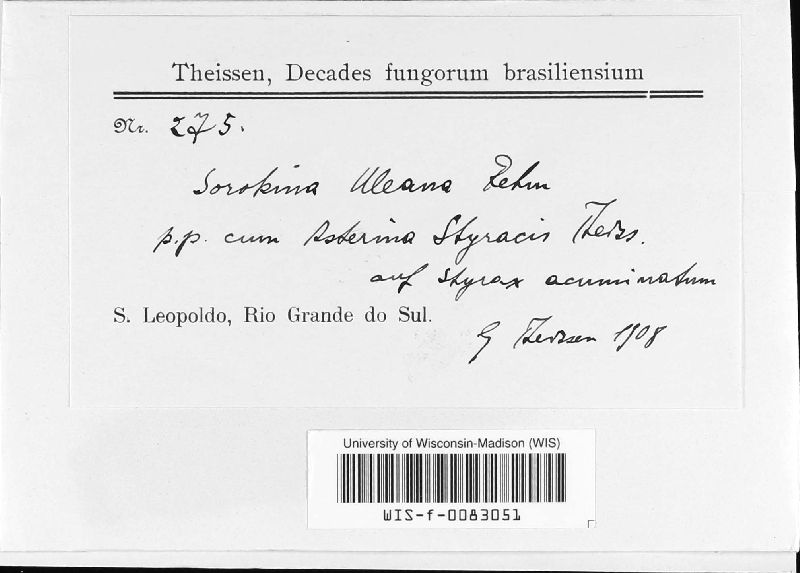 Theissen, Decades fungorum brasiliensium
Nr. 275.
Sorokina Uleana Rehm
p.p. cum Asterina Styracis Theiss.
auf Styrax acuminatum
S. Leopoldo, Rio Grande do Sul.
G Theissen 1908
University of Wisconsin-Madison (WIS)
WIS-f-0083051